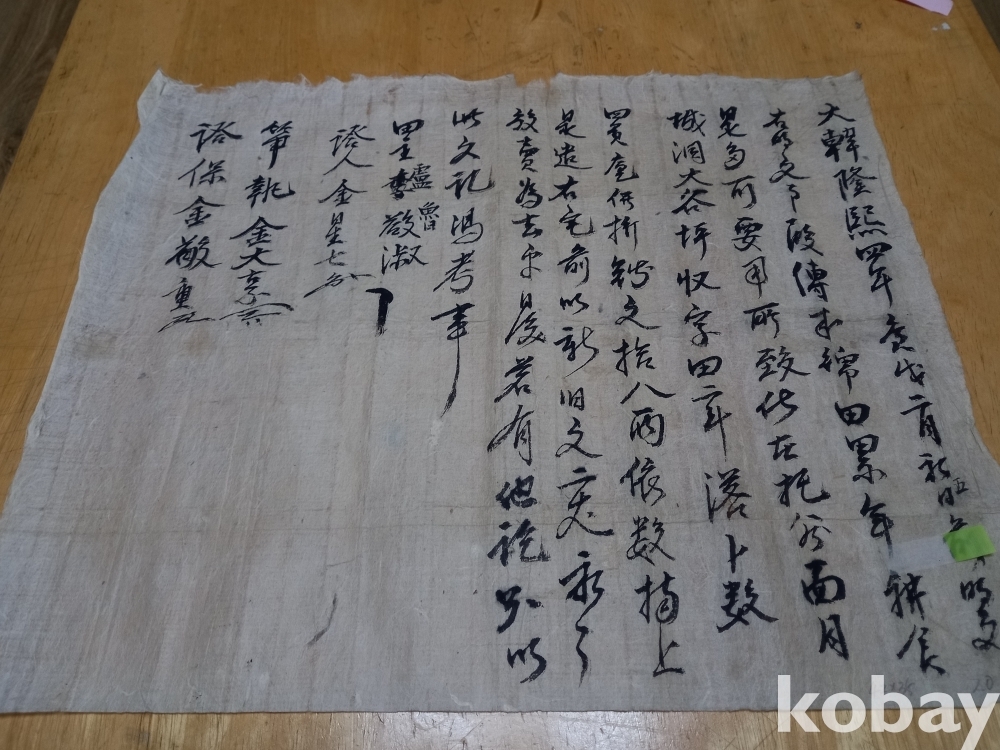 大韓隆熙四年庚戌二月 明文
右明文事段傳來綿田累年耕食
是多可要用所致伏在 谷面月
城洞大谷坪收字田二斗落卜數
買 價折錢文拾八兩依數捧上
是遣右宅前以新旧文二丈永
放賣爲去乎日後若有他說則以
此文記憑考事
田主 敬淑
證人金星七
筆執金大
證保金敬重
kobay